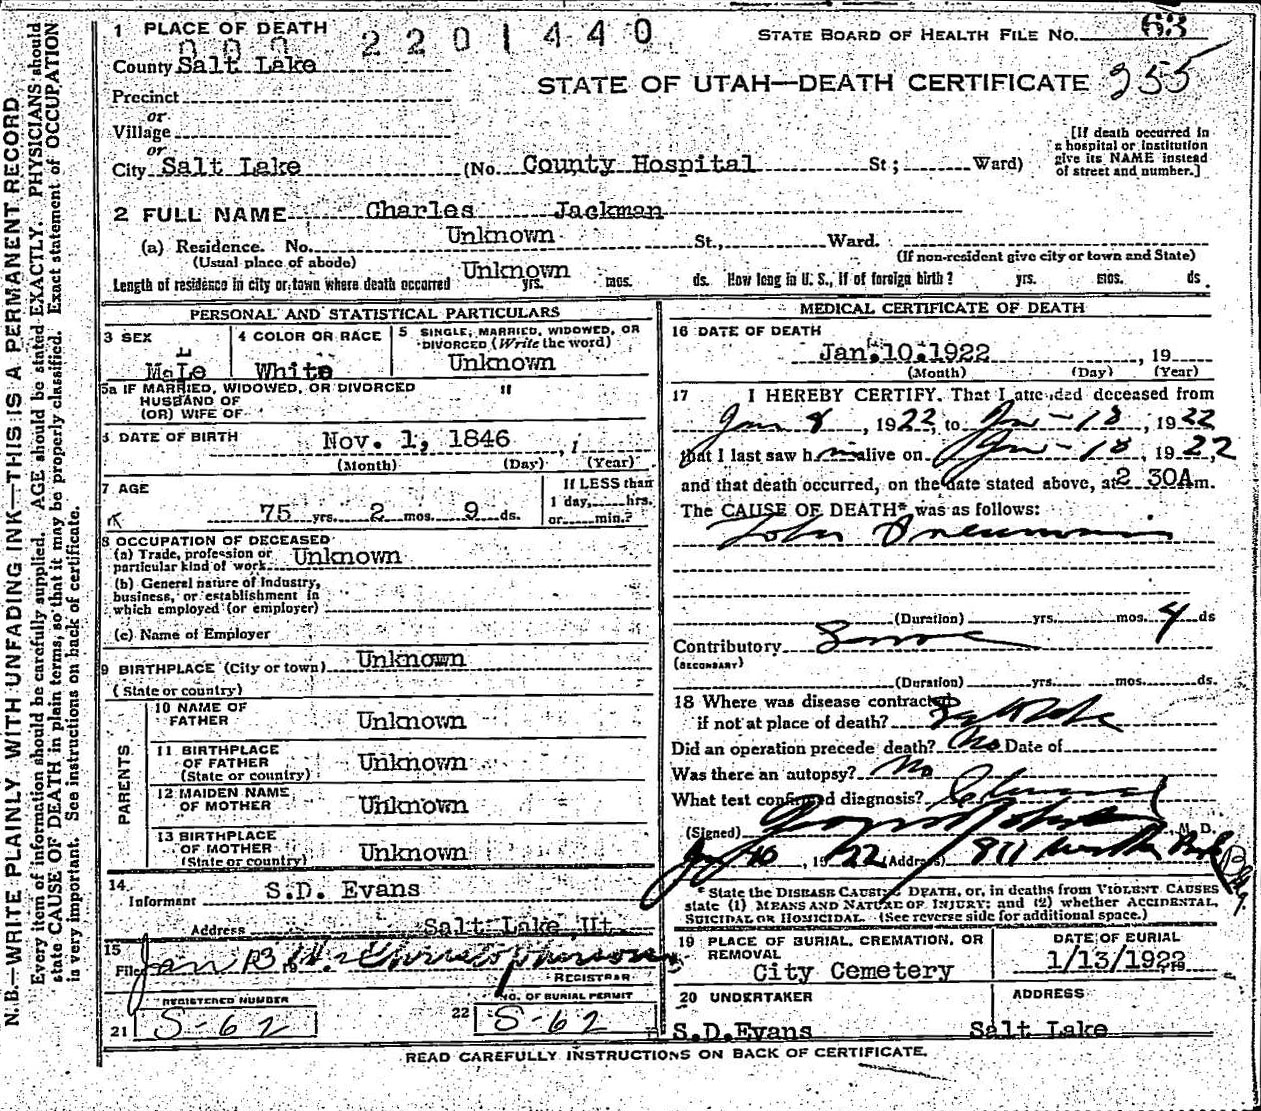 1 PLACE OF DEATH
000 2201440
STATE BOARD OF HEALTH FILE NO. 63
County Salt Lake
STATE OF UTAH—DEATH CERTIFICATE 255
Precinct
or
Village
or
City Salt Lake (No. County Hospital St; Ward)
[If death occurred in
a hospital or institution
give its NAME instead
of street and number.]
2 FULL NAME Charles Jackman
(a) Residence. No. Unknown St., Ward.
(Usual place of abode) (If non-resident give city or town and State)
Length of residence in city or town where death occurred Unknown yrs. mos. ds. How long in U. S., if of foreign birth? yrs. mos. ds.
PERSONAL AND STATISTICAL PARTICULARS
3 SEX
Male
4 COLOR OR RACE
White
5 SINGLE, MARRIED, WIDOWED, OR
DIVORCED (Write the word)
Unknown
5a IF MARRIED, WIDOWED, OR DIVORCED "
HUSBAND OF
(OR) WIFE OF
6 DATE OF BIRTH Nov. 1, 1846
(Month) (Day) (Year)
7 AGE
75 yrs. 2 mos. 9 ds.
If LESS than
1 day, hrs.
or min.?
8 OCCUPATION OF DECEASED
(a) Trade, profession or
particular kind of work Unknown
(b) General nature of Industry,
business, or establishment in
which employed (or employer)
(c) Name of Employer
9 BIRTHPLACE (City or town) Unknown
(State or country)
PARENTS
10 NAME OF
FATHER Unknown
11 BIRTHPLACE
OF FATHER Unknown
(State or country)
12 MAIDEN NAME
OF MOTHER Unknown
13 BIRTHPLACE
OF MOTHER Unknown
(State or country)
14
Informant S.D. Evans
Address Salt Lake, Ut.
15
Filed Jan 13 19 Christopherson
REGISTRAR
REGISTERED NUMBER
21 S-62
NO. OF BURIAL PERMIT
22 S-62
MEDICAL CERTIFICATE OF DEATH
16 DATE OF DEATH
Jan. 10. 1922, 19
(Month) (Day) (Year)
17 I HEREBY CERTIFY, That I attended deceased from
Jan 8, 1922, to Jan - 10, 1922
that I last saw him alive on Jan - 10, 1922
and that death occurred, on the date stated above, at 2 30A m.
The CAUSE OF DEATH* was as follows:
Lobar Pneumonia
(Duration) yrs. mos. 4 ds
Contributory
(SECONDARY)
(Duration) yrs. mos. ds.
18 Where was disease contracted
if not at place of death? Salt Lake
Did an operation precede death? No Date of
Was there an autopsy? No
What test confirmed diagnosis? Clinical
(Signed) M. D.
Jan 10, 1922 (Address) 911 Bldg.
* State the DISEASE CAUSING DEATH, or, in deaths from VIOLENT CAUSES
state (1) MEANS AND NATURE OF INJURY; and (2) whether ACCIDENTAL,
SUICIDAL OR HOMICIDAL. (See reverse side for additional space.)
19 PLACE OF BURIAL, CREMATION, OR
REMOVAL
City Cemetery
DATE OF BURIAL
1/13/1922, 19
20 UNDERTAKER
S.D.Evans
ADDRESS
Salt Lake
READ CAREFULLY INSTRUCTIONS ON BACK OF CERTIFICATE.
N.B.—WRITE PLAINLY WITH UNFADING INK—THIS IS A PERMANENT RECORD
Every item of information should be carefully supplied. AGE should be stated EXACTLY. PHYSICIANS should
state CAUSE OF DEATH in plain terms, so that it may be properly classified. Exact statement of OCCUPATION
is very important. See instructions on back of certificate.